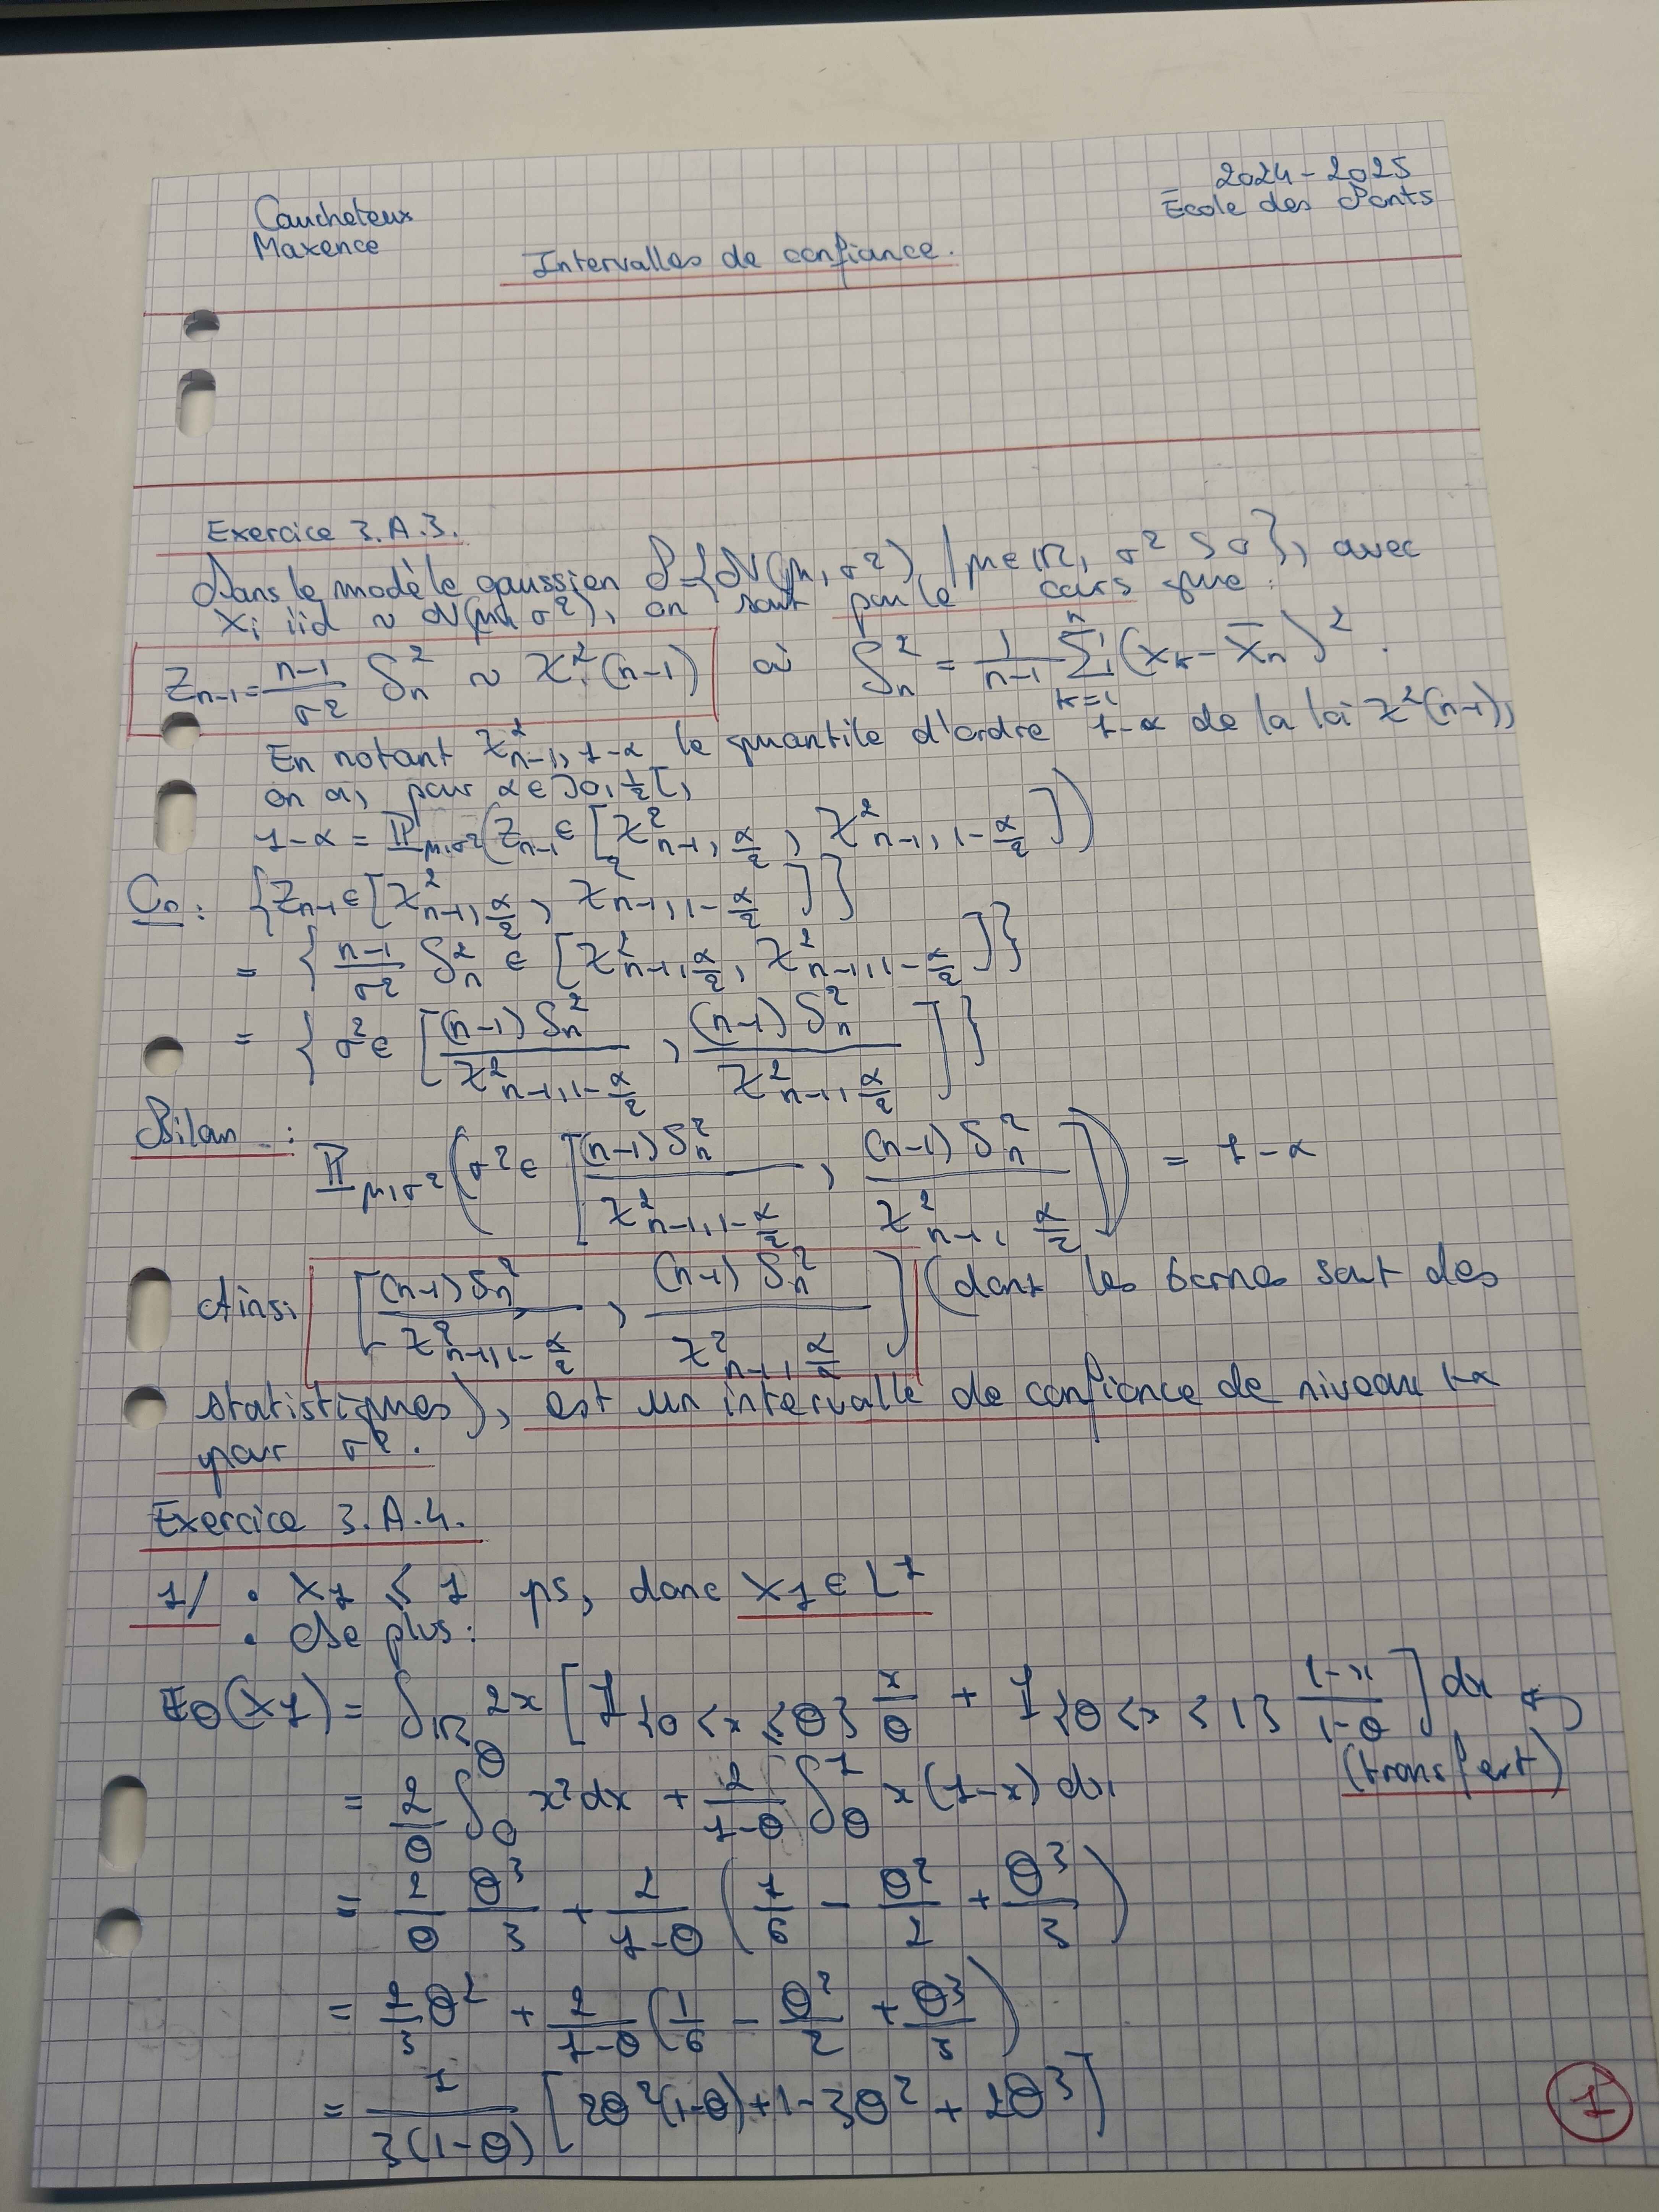 Caucheteux
Maxence
2024-2025
École des Ponts
Intervalles de confiance.
Exercice 3.A.3.
Dans le modèle gaussien P={N(μ, σ²) / μ∈ℝ, σ²>0}, avec
Xi iid ~ N(μ, σ²), on sait par le cours que:
Z_{n-1} = \frac{n-1}{σ²} S_n² ~ χ²(n-1) où S_n² = \frac{1}{n-1} Σ_{k=1}^{n} (X_k - X̄_n)².
En notant χ²_{n-1, 1-α} le quantile d'ordre 1-α de la loi χ²(n-1),
on a, pour α∈]0, 1/2[,
1-α = ℙ_{μ,σ²}(Z_{n-1} ∈ [χ²_{n-1, α/2}, χ²_{n-1, 1-α/2}])
Or: {Z_{n-1} ∈ [χ²_{n-1, α/2}, χ²_{n-1, 1-α/2}]}
= {\frac{n-1}{σ²} S_n² ∈ [χ²_{n-1, α/2}, χ²_{n-1, 1-α/2}]}
= {σ² ∈ [\frac{(n-1) S_n²}{χ²_{n-1, 1-α/2}}, \frac{(n-1) S_n²}{χ²_{n-1, α/2}}]}
Bilan : ℙ_{μ,σ²}(σ² ∈ [\frac{(n-1) S_n²}{χ²_{n-1, 1-α/2}}, \frac{(n-1) S_n²}{χ²_{n-1, α/2}}]) = 1-α
Ainsi [\frac{(n-1) S_n²}{χ²_{n-1, 1-α/2}}, \frac{(n-1) S_n²}{χ²_{n-1, α/2}}] (dont les bornes sont des
statistiques), est un intervalle de confiance de niveau 1-α
pour σ².
Exercice 3.A.4.
1/ • X1 ≤ 1 ps, donc X1 ∈ L¹
• De plus:
𝔼θ(X1) = ∫_ℝ 2x [𝟙_{0<x≤θ} \frac{x}{θ} + 𝟙_{θ<x≤1} \frac{1-x}{1-θ}] dx
(transfert)
= \frac{2}{θ} ∫_0^θ x² dx + \frac{2}{1-θ} ∫_θ^1 x(1-x) dx
= \frac{2}{θ} \frac{θ³}{3} + \frac{2}{1-θ} (\frac{1}{6} - \frac{θ²}{2} + \frac{θ³}{3})
= \frac{2}{3}θ² + \frac{2}{1-θ} (\frac{1}{6} - \frac{θ²}{2} + \frac{θ³}{3})
= \frac{1}{3(1-θ)} [2θ²(1-θ)+1-3θ² + 2θ³]
1